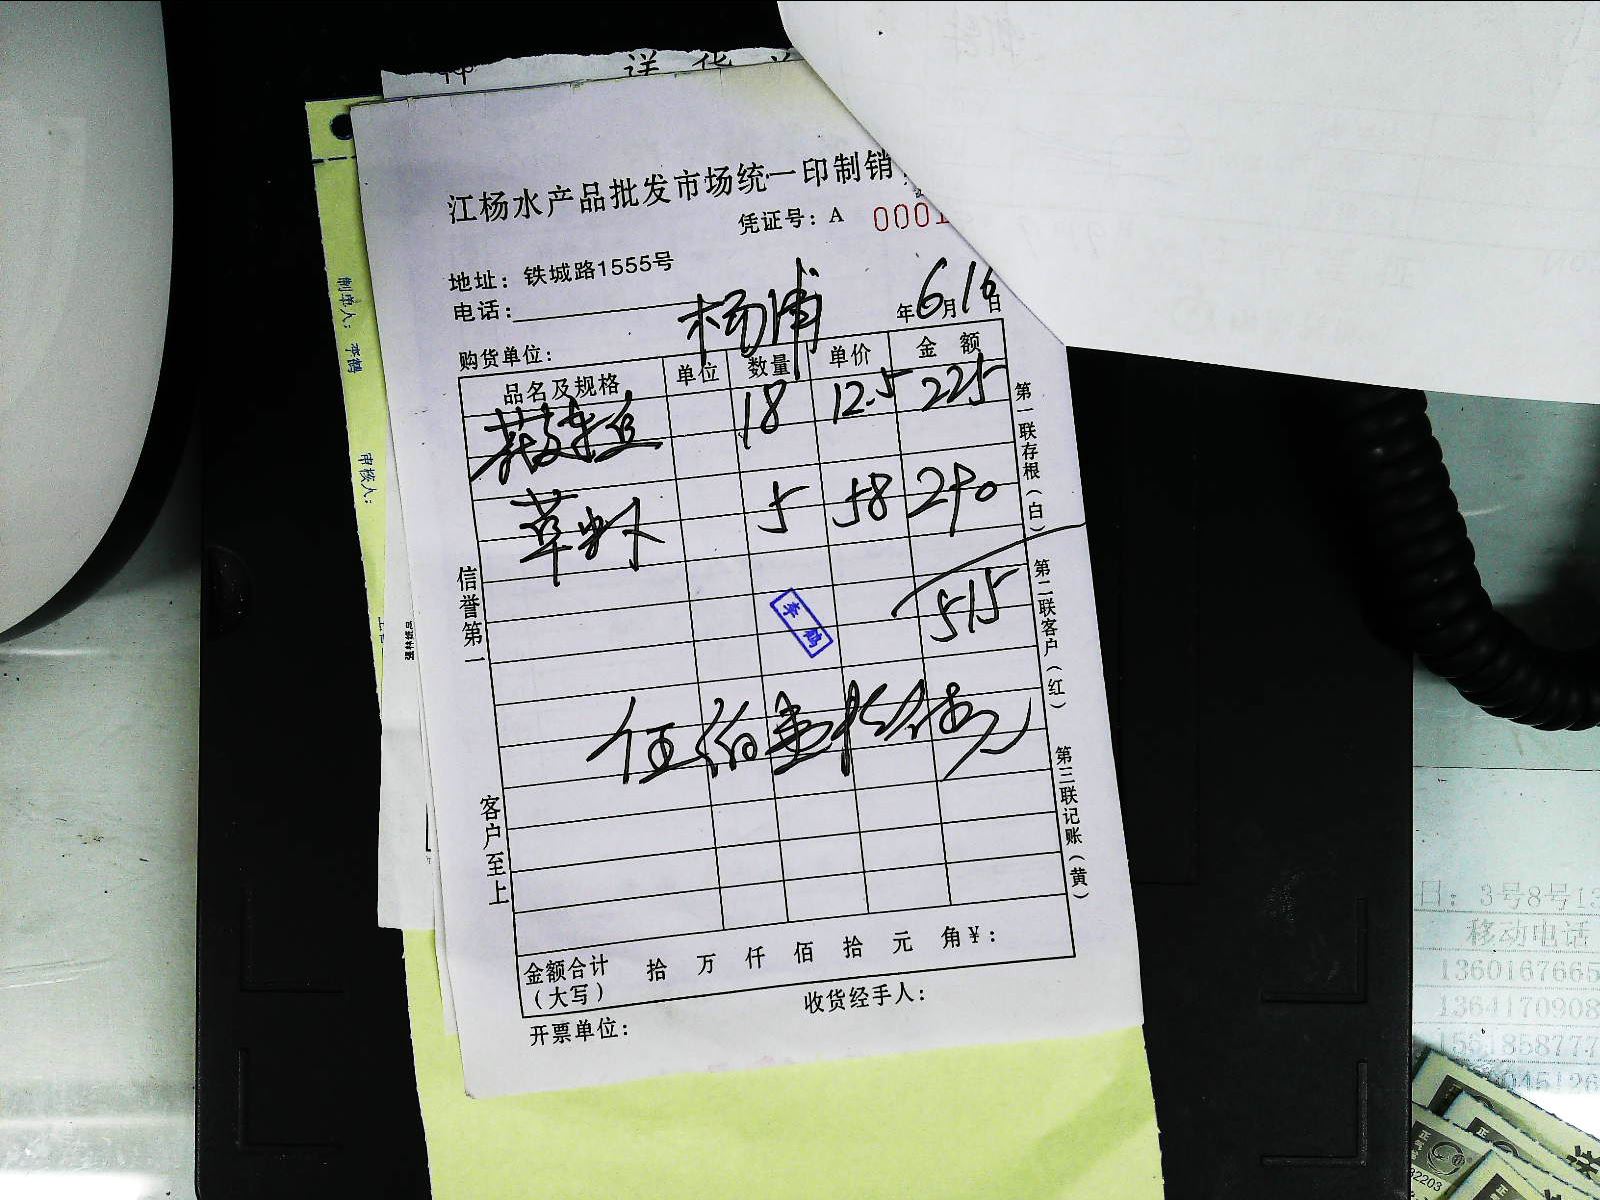 送 货
江杨水产品批发市场统一印制销
凭证号：A 0001
地址：铁城路1555号
电话：
购货单位： 杨浦 年6月16日
品名及规格 单位 数量 单价 金 额
18 12.5 225
草虾 5 58 290
515
李鹤
伍佰壹拾伍元
金额合计（大写） 拾 万 仟 佰 拾 元 角¥：
收货经手人：
开票单位：
信誉第一
客户至上
第一联存根（白）
第二联客户（红）
第三联记账（黄）
制单人：李鹤
审核人：
日：3号8号13
移动电话
1360167665
1364170908